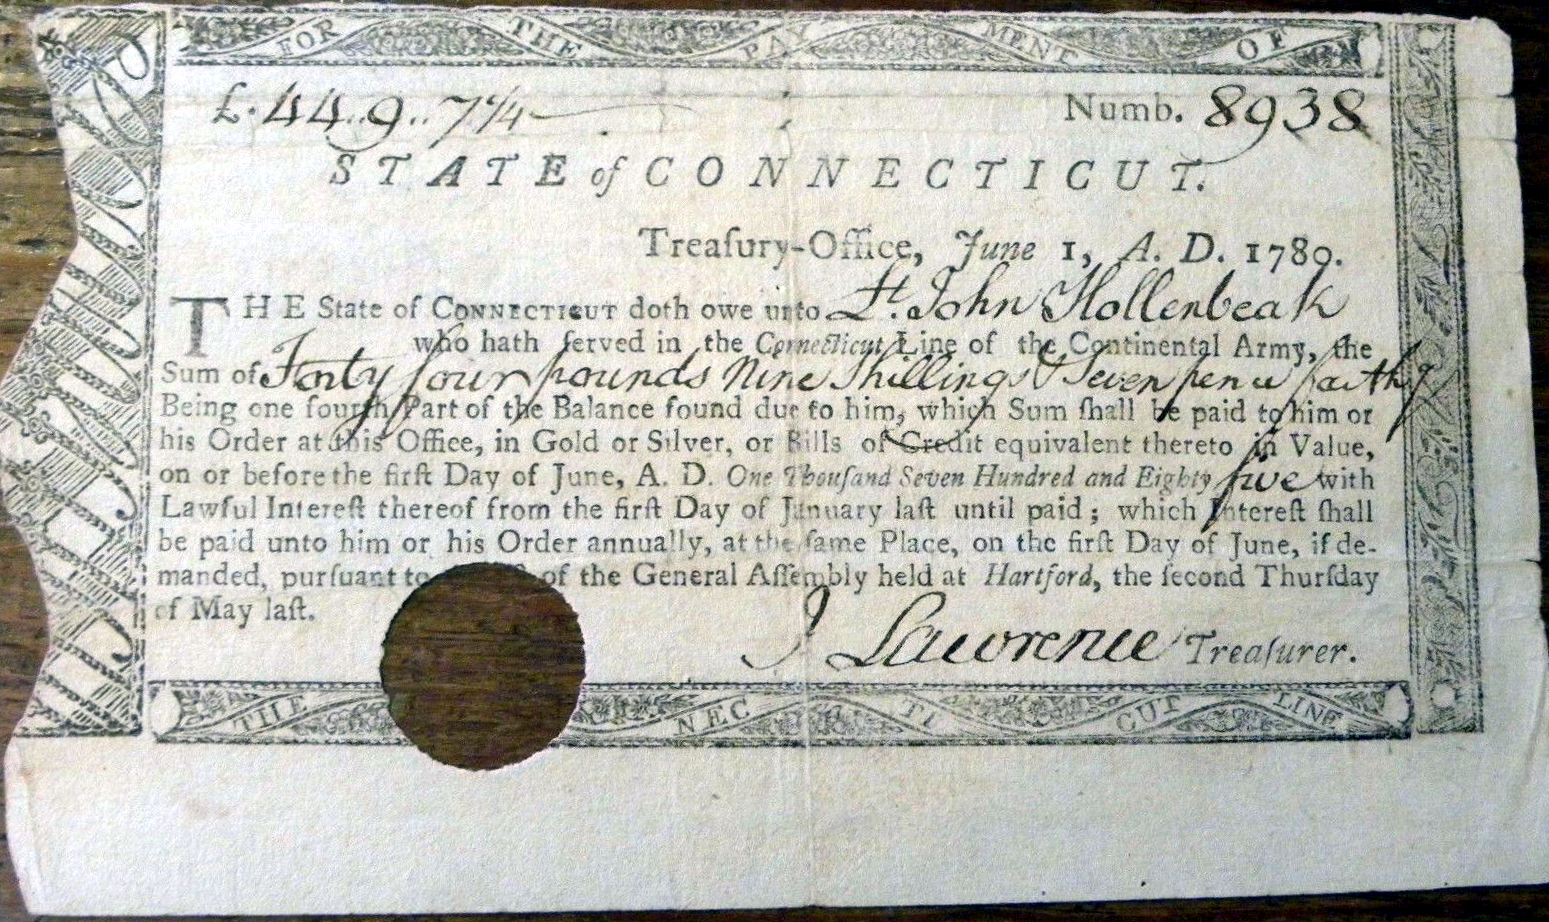 FOR THE PAYMENT OF
£.44..9..7¼
Numb. 8938
STATE of CONNECTICUT.
Treaſury-Office, June 1, A. D. 1780.
THE State of CONNECTICUT doth owe unto Lt. John Hollenbeak
who hath ſerved in the Connecticut Line of the Continental Army, the
Sum of Forty four pounds Nine Shillings & Seven pence farthg
Being one fourth Part of the Balance found due to him, which Sum ſhall be paid to him or
his Order at this Office, in Gold or Silver, or Bills of Credit equivalent thereto in Value,
on or before the firſt Day of June, A. D. One Thouſand Seven Hundred and Eighty five with
Lawful Intereſt thereof from the firſt Day of January laſt until paid; which Intereſt ſhall
be paid unto him or his Order annually, at the ſame Place, on the firſt Day of June, if de-
manded, purſuant to of the General Aſſembly held at Hartford, the ſecond Thurſday
of May laſt.
J Lawrence Treaſurer.
THE NEC TI CUT LINE